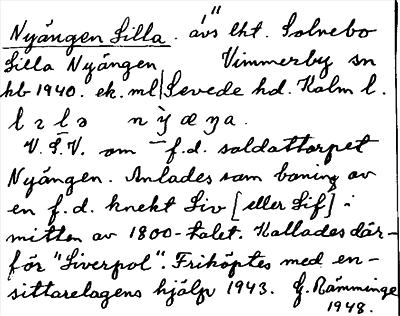 Nyängen Lilla. avs lht. Solnebo
Lilla Nyängen Vimmerby sn
hb 1940. ek. ml Sevede hd. Kalm l.
V. S. V. om f.d. soldattorpet
Nyängen. Anlades som boning av
en f.d. knekt Liv [eller Lif] i
mitten av 1800-talet. Kallades där-
för "Liverpol". Friköptes med en-
sittarelagens hjälp 1943. G. Rämminge
1948.